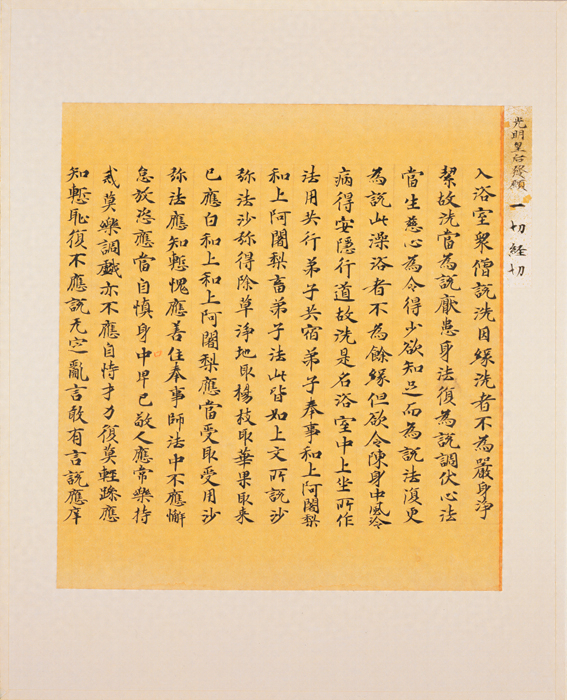 光明皇后發願一切経切
入浴室眾僧說洗因緣洗者不為嚴身淨
潔故洗當為說厭患身法復為說調伏心法
當生慈心為令得少欲知足而為說法復更
為說此澡浴者不為餘緣但欲令除身中風冷
病得安隱行道故洗是名浴室中上坐所作
法用共行弟子共宿弟子奉事和上阿闍梨
和上阿闍梨畜弟子法此皆如上文所說沙
弥法沙弥得除草淨地取楊枝取華果取來
已應白和上和上阿闍梨應當受取受用沙
弥法應知慙愧應善住奉事師法中不應懈
怠放恣應當自慎身中卑已敬人應常樂持
戒莫樂調戲亦不應自恃才力復莫輕躁應
知慙恥復不應說无定亂言敢有言說應庠